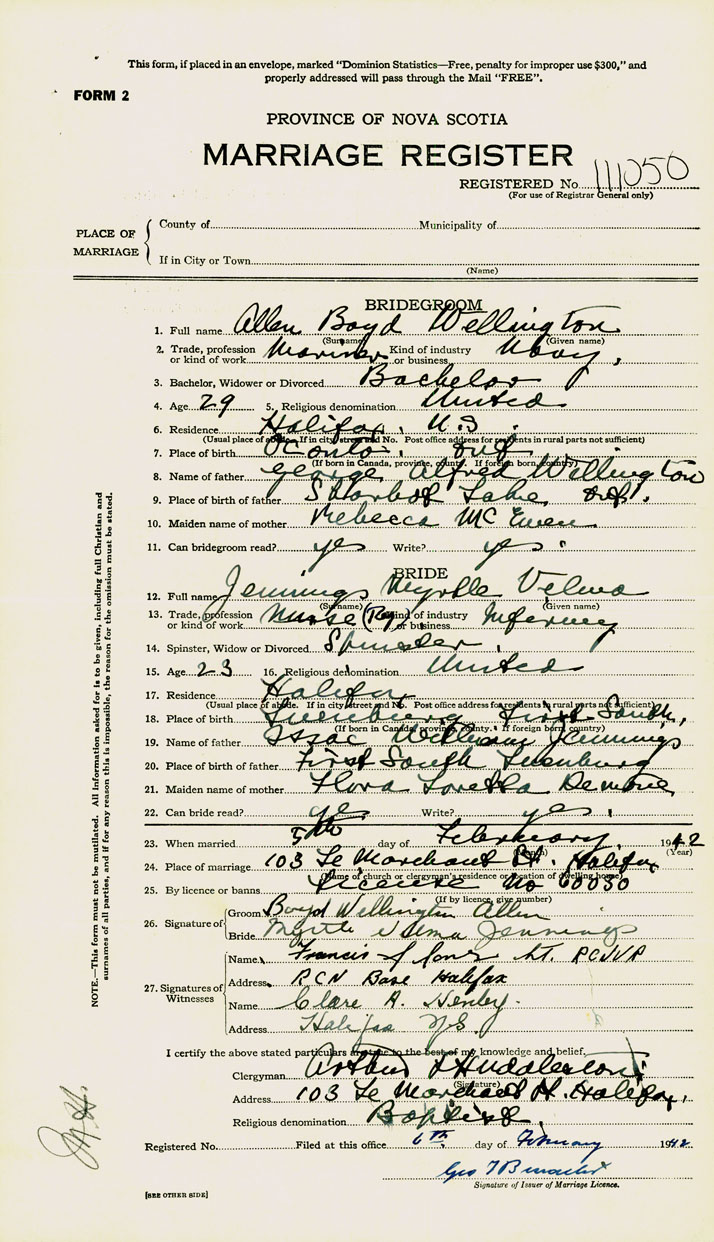 This form, if placed in an envelope, marked "Dominion Statistics—Free, penalty for improper use $300," and
properly addressed will pass through the Mail "FREE".
FORM 2
PROVINCE OF NOVA SCOTIA
MARRIAGE REGISTER
REGISTERED No. 111050
(For use of Registrar General only)
PLACE OF MARRIAGE
County of Municipality of
If in City or Town
(Name)
BRIDEGROOM
1. Full name Allen Boyd Wellington
(Surname) (Given name)
2. Trade, profession or kind of work Mariner Kind of industry or business Navy
3. Bachelor, Widower or Divorced Bachelor
4. Age 29 5. Religious denomination United
6. Residence Halifax, N.S.
(Usual place of abode. If in city street and No. Post office address for residents in rural parts not sufficient)
7. Place of birth Ont
(If born in Canada, province, county. If foreign born, country)
8. Name of father George Alfred Wellington
9. Place of birth of father Sharbot Lake, Ont.
10. Maiden name of mother Rebecca McEwen
11. Can bridegroom read? yes Write? yes.
BRIDE
12. Full name Jennings Myrtle Velma
(Surname) (Given name)
13. Trade, profession or kind of work Nurse (Rg) Kind of industry or business
14. Spinster, Widow or Divorced Spinster.
15. Age 23 16. Religious denomination United
17. Residence Halifax
(Usual place of abode. If in city street and No. Post office address for residents in rural parts not sufficient)
18. Place of birth Lunenburg First South,
(If born in Canada, province, county. If foreign born country)
19. Name of father Issac William Jennings
20. Place of birth of father First South Lunenburg
21. Maiden name of mother Flora Loretta Demone
22. Can bride read? yes Write? yes.
23. When married 5th day of February 1942
(Month) (Year)
24. Place of marriage 103 Le Marchant St. Halifax
(Name of church or clergyman's residence or location of dwelling house)
25. By licence or banns License No 60050
(If by licence, give number)
26. Signature of
Groom Boyd Wellington Allen
Bride Myrtle Velma Jennings
27. Signatures of Witnesses
Name Francis Lt. RCNVR
Address RCN Base Halifax
Name Clare A. Henley.
Address Halifax N.S.
I certify the above stated particulars are true to the best of my knowledge and belief,
Clergyman Arthur Huddleston
(Signature)
Address 103 Le Marchant St. Halifax,
Religious denomination Baptist.
Registered No. Filed at this office 6th day of February 1942
Geo
Signature of Issuer of Marriage Licence.
[SEE OTHER SIDE]
NOTE.—This form must not be mutilated. All information asked for is to be given, including full Christian and
surnames of all parties, and if for any reason this is impossible, the reason for the omission must be stated.